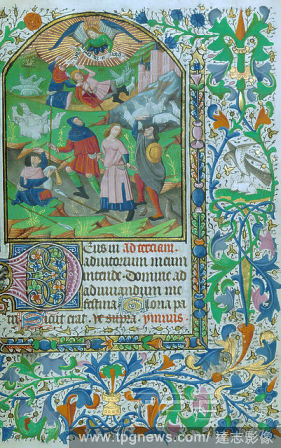 Deus in Ad terciam.
adiutorium meum
intende. Domine ad
adiuuandum me
festina. Gloria pa
tri Sicut erat. ut supra. ymnus.
www.tpgnews.com/ 達志影像